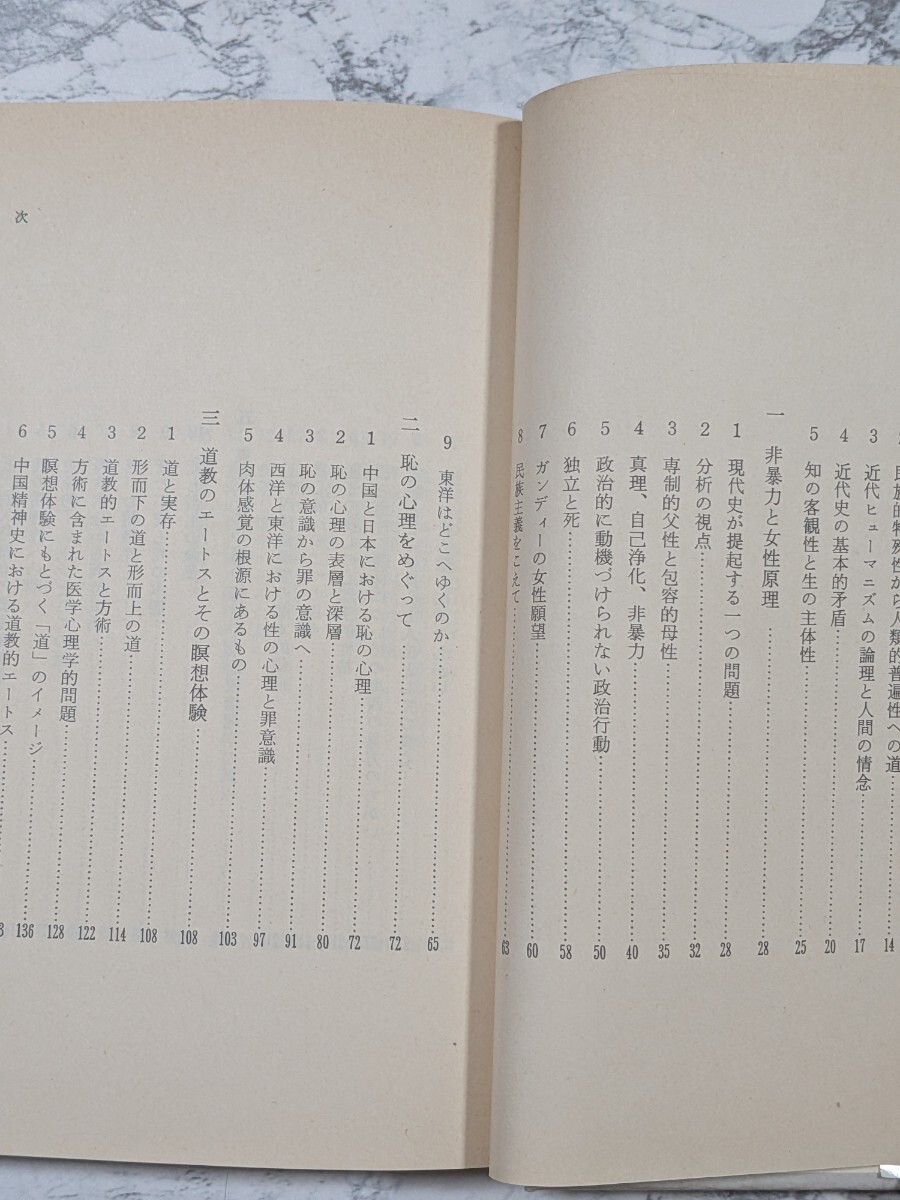 民族的特殊性から人類的普遍性への道……14
3 近代ヒューマニズムの論理と人間の情念……17
4 近代史の基本的矛盾……20
5 知の客観性と生の主体性……25
一 非暴力と女性原理……28
1 現代史が提起する一つの問題……28
2 分析の視点……32
3 専制的父性と包容的母性……35
4 真理、自己浄化、非暴力……40
5 政治的に動機づけられない政治行動……50
6 独立と死……58
7 ガンディーの女性願望……60
8 民族主義をこえて……63
9 東洋はどこへゆくのか……65
二 恥の心理をめぐって……72
1 中国と日本における恥の心理……72
2 恥の心理の表層と深層……80
3 恥の意識から罪の意識へ……91
4 西洋と東洋における性の心理と罪意識……97
5 肉体感覚の根源にあるもの……103
三 道教のエートスとその瞑想体験……108
1 道と実存……108
2 形而下の道と形而上の道……114
3 道教的エートスと方術……122
4 方術に含まれた医学心理学的問題……128
5 瞑想体験にもとづく「道」のイメージ……136
6 中国精神史における道教的エートス……
次